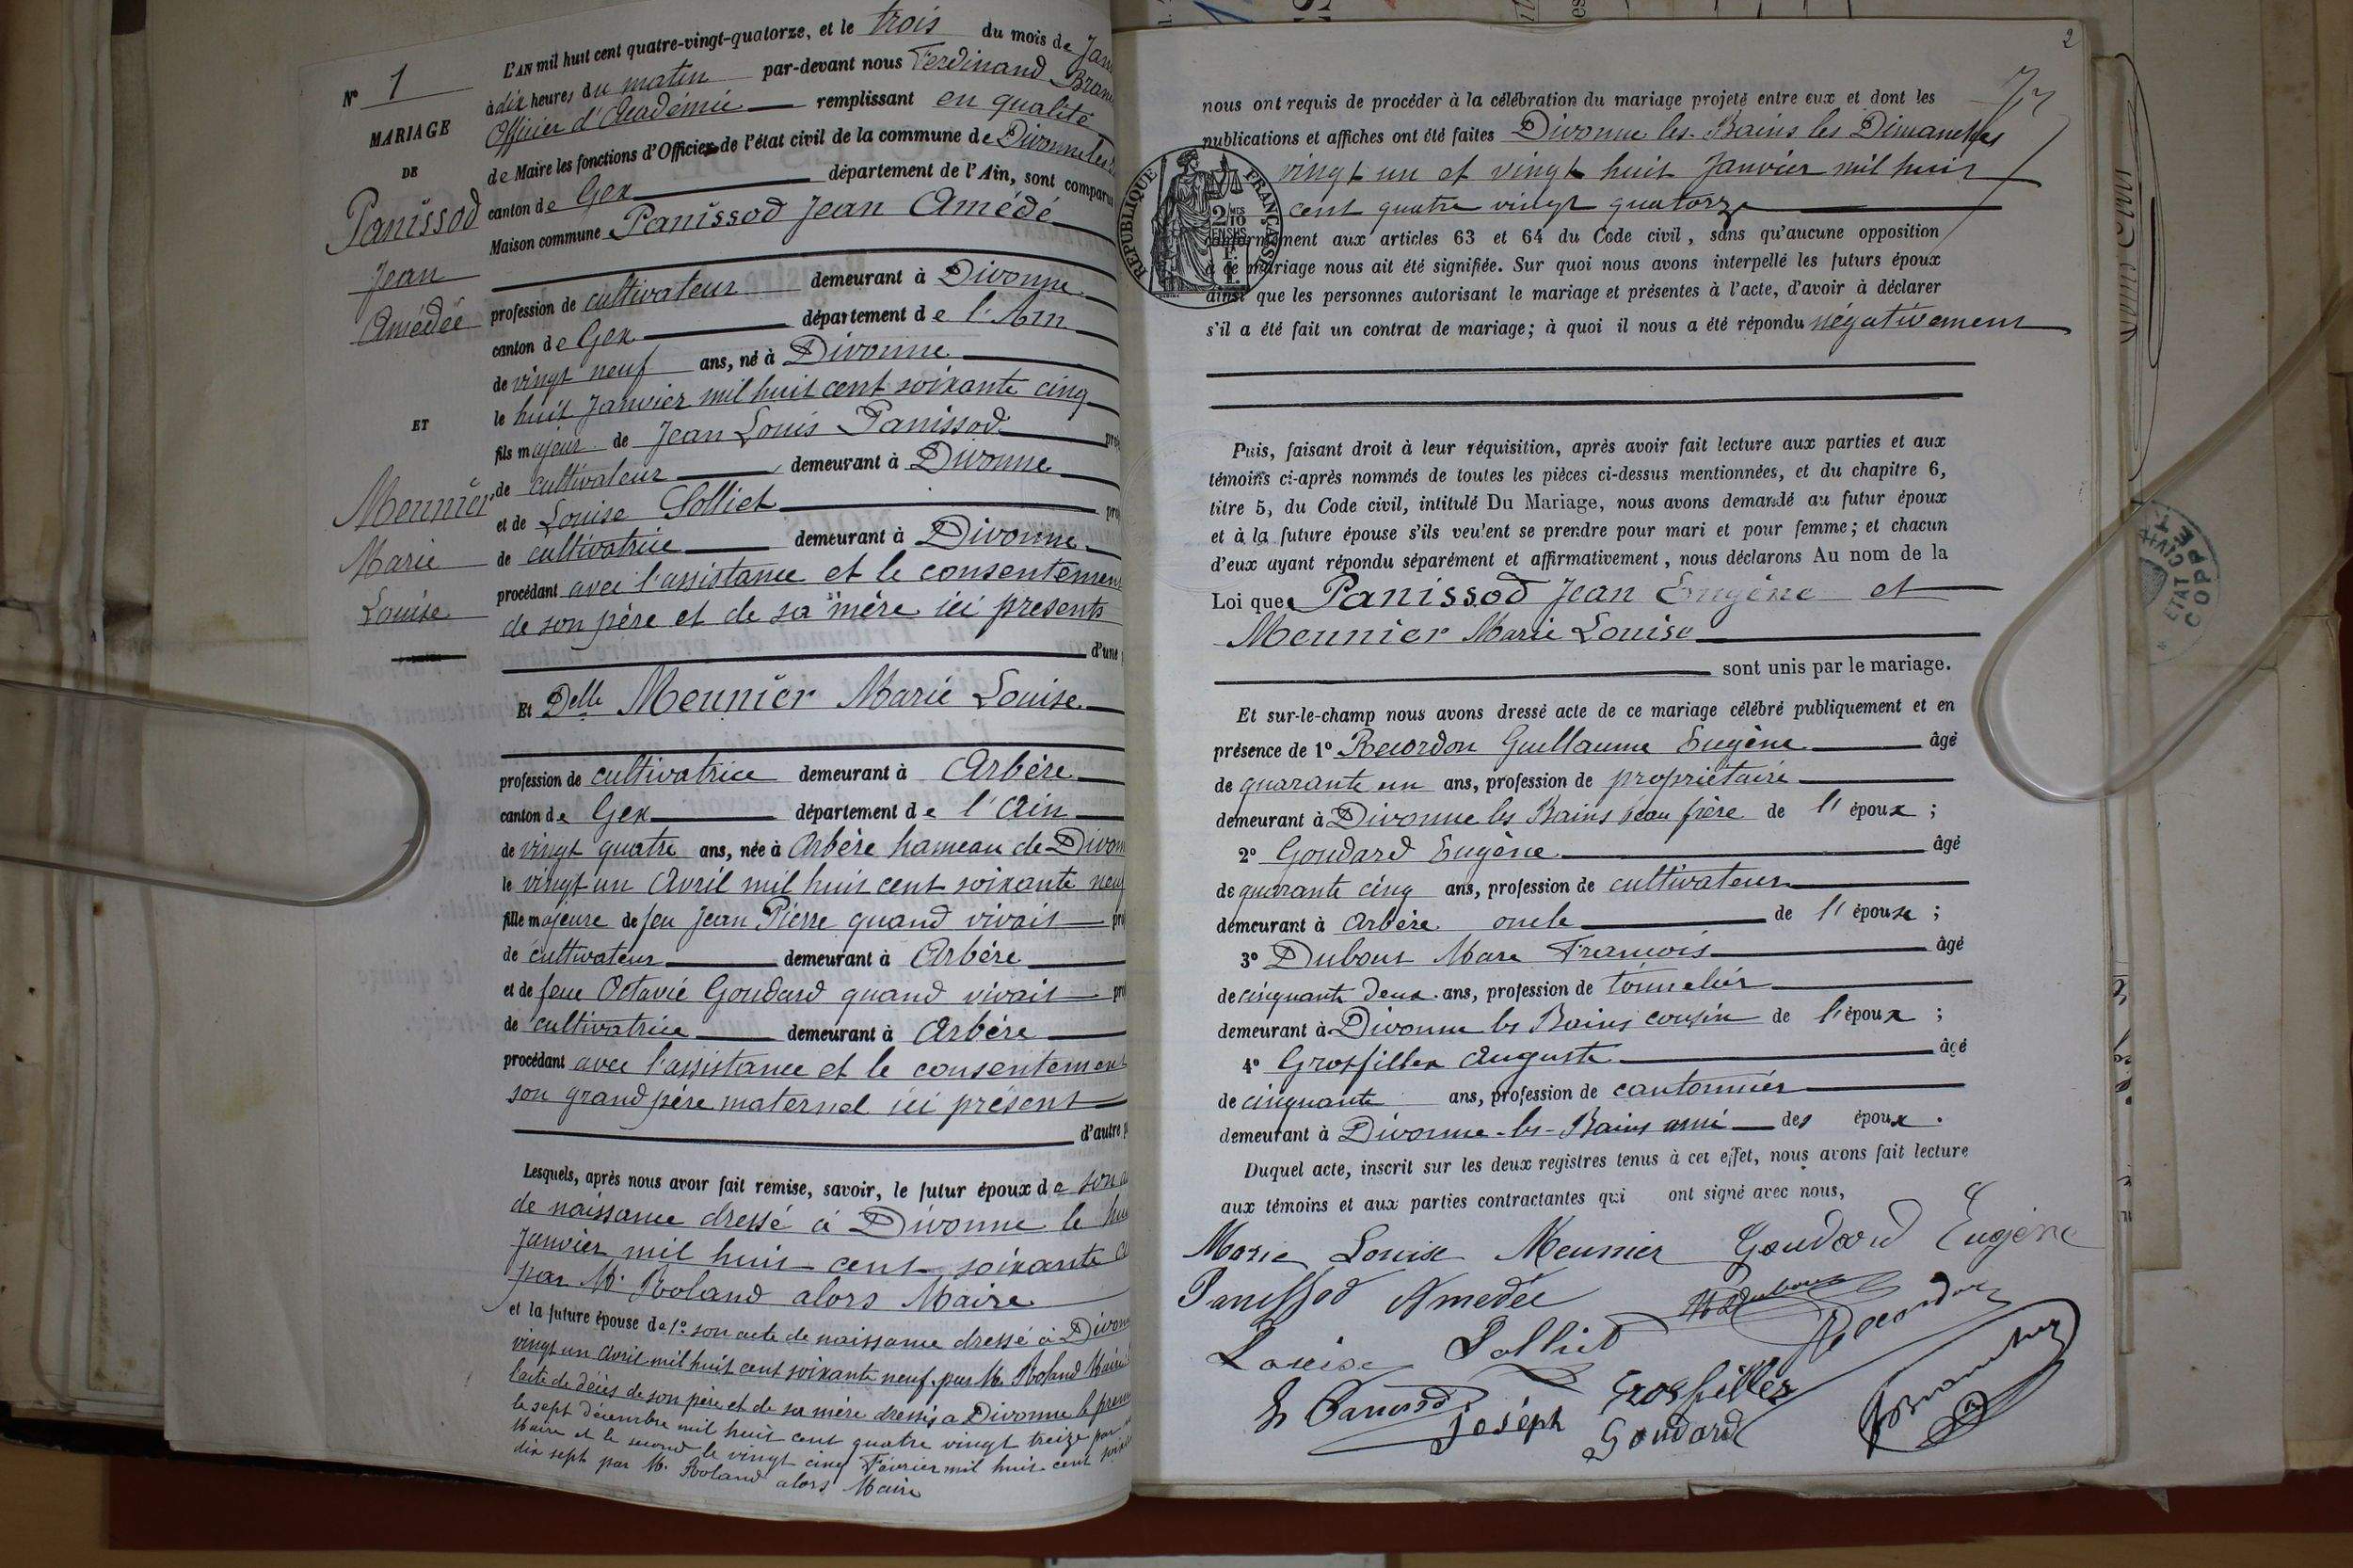 N° 1
MARIAGE
DE
Panissod
Jean
Amédée
ET
Meunier
Marie
Louise
L'AN mil huit cent quatre-vingt-quatorze, et le trois du mois de
à dix heures du matin par-devant nous Ferdinand
Officier d'Académie remplissant en qualité
de Maire les fonctions d'Officier de l'état civil de la commune de Divonne les
canton de Gex département de l'Ain, sont comparus
Maison commune Panissod Jean Amédé
profession de cultivateur demeurant à Divonne
canton de Gex département de l'Ain
de vingt neuf ans, né à Divonne
le huit Janvier mil huit cent soixante cinq
fils majeur de Jean Louis Panissod
de cultivateur demeurant à Divonne
et de Louise Solliet
de cultivatrice demeurant à Divonne
procédant avec l'assistance et le consentement
de son père et de sa mère ici présents
d'une
Et Delle Meunier Marie Louise
profession de cultivatrice demeurant à Arbère
canton de Gex département de l'Ain
de vingt quatre ans, née à Arbère hameau de
le vingt un Avril mil huit cent soixante neuf
fille majeure de feu Jean Pierre quand vivait
de cultivateur demeurant à Arbère
et de feue Octavie Goudard quand vivait
de cultivatrice demeurant à Arbère
procédant avec l'assistance et le consentement
son grand père maternel ici présent
d'autre
Lesquels, après nous avoir fait remise, savoir, le futur époux de son
de naissance dressé à Divonne le
Janvier mil huit cent soixante
par M. Roland alors Maire
et la future épouse de 1° son acte de naissance dressé à
vingt un Avril mil huit cent soixante neuf par M. Roland Maire
l'acte de décès de son père et de sa mère dressés à Divonne le
le sept décembre mil huit cent quatre vingt treize par
Maire et le second le vingt cinq Février mil huit cent
dix sept par M. Roland alors Maire
2
nous ont requis de procéder à la célébration du mariage projeté entre eux et dont les
publications et affiches ont été faites Divonne les Bains les Dimanches
vingt un et vingt huit Janvier mil huit
cent quatre vingt quatorze
conformément aux articles 63 et 64 du Code civil, sans qu'aucune opposition
à ce mariage nous ait été signifiée. Sur quoi nous avons interpellé les futurs époux
ainsi que les personnes autorisant le mariage et présentes à l'acte, d'avoir à déclarer
s'il a été fait un contrat de mariage; à quoi il nous a été répondu négativement
RÉPUBLIQUE FRANÇAISE
2/10
Puis, faisant droit à leur réquisition, après avoir fait lecture aux parties et aux
témoins ci-après nommés de toutes les pièces ci-dessus mentionnées, et du chapitre 6,
titre 5, du Code civil, intitulé Du Mariage, nous avons demandé au futur époux
et à la future épouse s'ils veulent se prendre pour mari et pour femme; et chacun
d'eux ayant répondu séparément et affirmativement, nous déclarons Au nom de la
Loi que Panissod Jean Eugène et
Meunier Marie Louise
sont unis par le mariage.
Et sur-le-champ nous avons dressé acte de ce mariage célébré publiquement et en
présence de 1° Recordon Guillaume Eugène âgé
de quarante un ans, profession de propriétaire
demeurant à Divonne les Bains beau frère de l'époux;
2° Goudard Eugène âgé
de quarante cinq ans, profession de cultivateur
demeurant à Arbère oncle de l'épouse;
3° Dubout Marc François âgé
de cinquante deux ans, profession de tonnelier
demeurant à Divonne les Bains cousin de l'époux;
4° Grosfillex Auguste âgé
de cinquante ans, profession de cantonnier
demeurant à Divonne-les-Bains ami des époux.
Duquel acte, inscrit sur les deux registres tenus à cet effet, nous avons fait lecture
aux témoins et aux parties contractantes qui ont signé avec nous,
Marie Louise Meunier Goudard Eugène
Panissod Amedée
Louise Solliet Recordon
Grosfillex
Joséph Goudard
ETAT CIVIL
COPPE